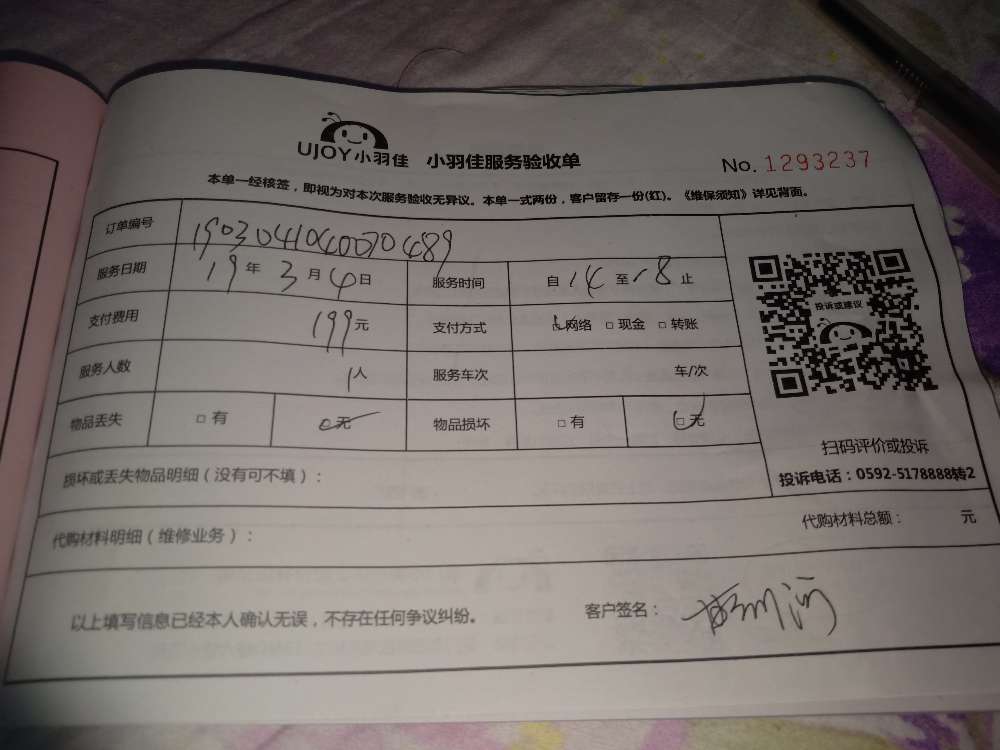 UJOY小羽佳 小羽佳服务验收单 No. 1293237
本单一经核签，即视为对本次服务验收无异议。本单一式两份，客户留存一份(红)。《维保须知》详见背面。
订单编号 1903041040070489
服务日期 19年3月4日 服务时间 自14至18止
支付费用 199元 支付方式 □网络 □现金 □转账
服务人数 1人 服务车次 车/次
物品丢失 □有 □无 物品损坏 □有 □无
投诉或建议
扫码评价或投诉
投诉电话：0592-5178888转2
损坏或丢失物品明细（没有可不填）：
代购材料明细（维修业务）： 代购材料总额： 元
以上填写信息已经本人确认无误，不存在任何争议纠纷。 客户签名：